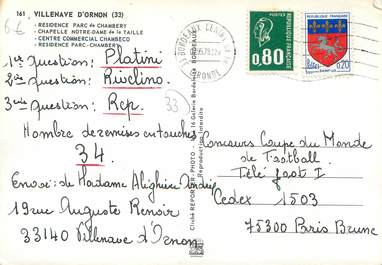 161 VILLENAVE D'ORNON (33)
- RESIDENCE PARC de CHAMBERY
- CHAPELLE NOTRE-DAME de la TAILLE
- CENTRE COMMERCIAL CHAMBECO
- RESIDENCE PARC-CHAMBERY
6€
1ère question: Platini
2ème question: Rioclino
3ème question: Rep.
33
Nombre de remises en touches
34.
Envoi: de Madame Alighieri
19 rue Auguste Renoir
33140 Villenave d'Ornon
Cliché REPORTER-PHOTO - 16 Galerie Bordelaise BORDEAUX
Reproduction Interdite
BORDEAUX
GIRONDE
0,80
REPUBLIQUE FRANÇAISE
0,20
SAINT-LO
Concours Coupe du Monde
de Football
Télé foot 1
Cedex 1503
75300 Paris Brune